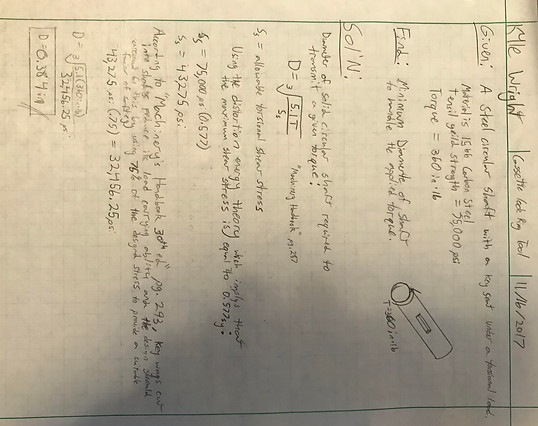 Kyle Wright | Cassette Lock Ring Tool | 11/16/2017
Given: A Steel circular Shaft with a key seat under a torsional load.
Material is 1566 Carbon Steel
tensil yeild strength = 75,000 psi
Torque = 360 in·lb
Find: Minimum Diameter of shaft
to handle the applied torque.
T=360 in·lb
Sol'N:
Diameter of solid circular shaft required to
transmit a given torque:
D = ∛(5.1T/Ss) "Machinery Handbook" pg. 287
Ss = allowable torsional shear stress
Using the distortion energy theory which implys that
the maximum shear stress is equal to 0.577Sy:
Ss = 75,000 psi (0.577)
Ss = 43,275 psi
According to "Machinery's Handbook 30th ed" pg. 293, key ways cut
into shafts reduce its load carrying ability and the design should
account for this by using 75% of the design stress to provide a suitable
factor of safety
43,275 psi (.75) = 32,456.25 psi
D = ∛(5.1(360 in·lb)/32456.25 psi)
D = 0.384 in